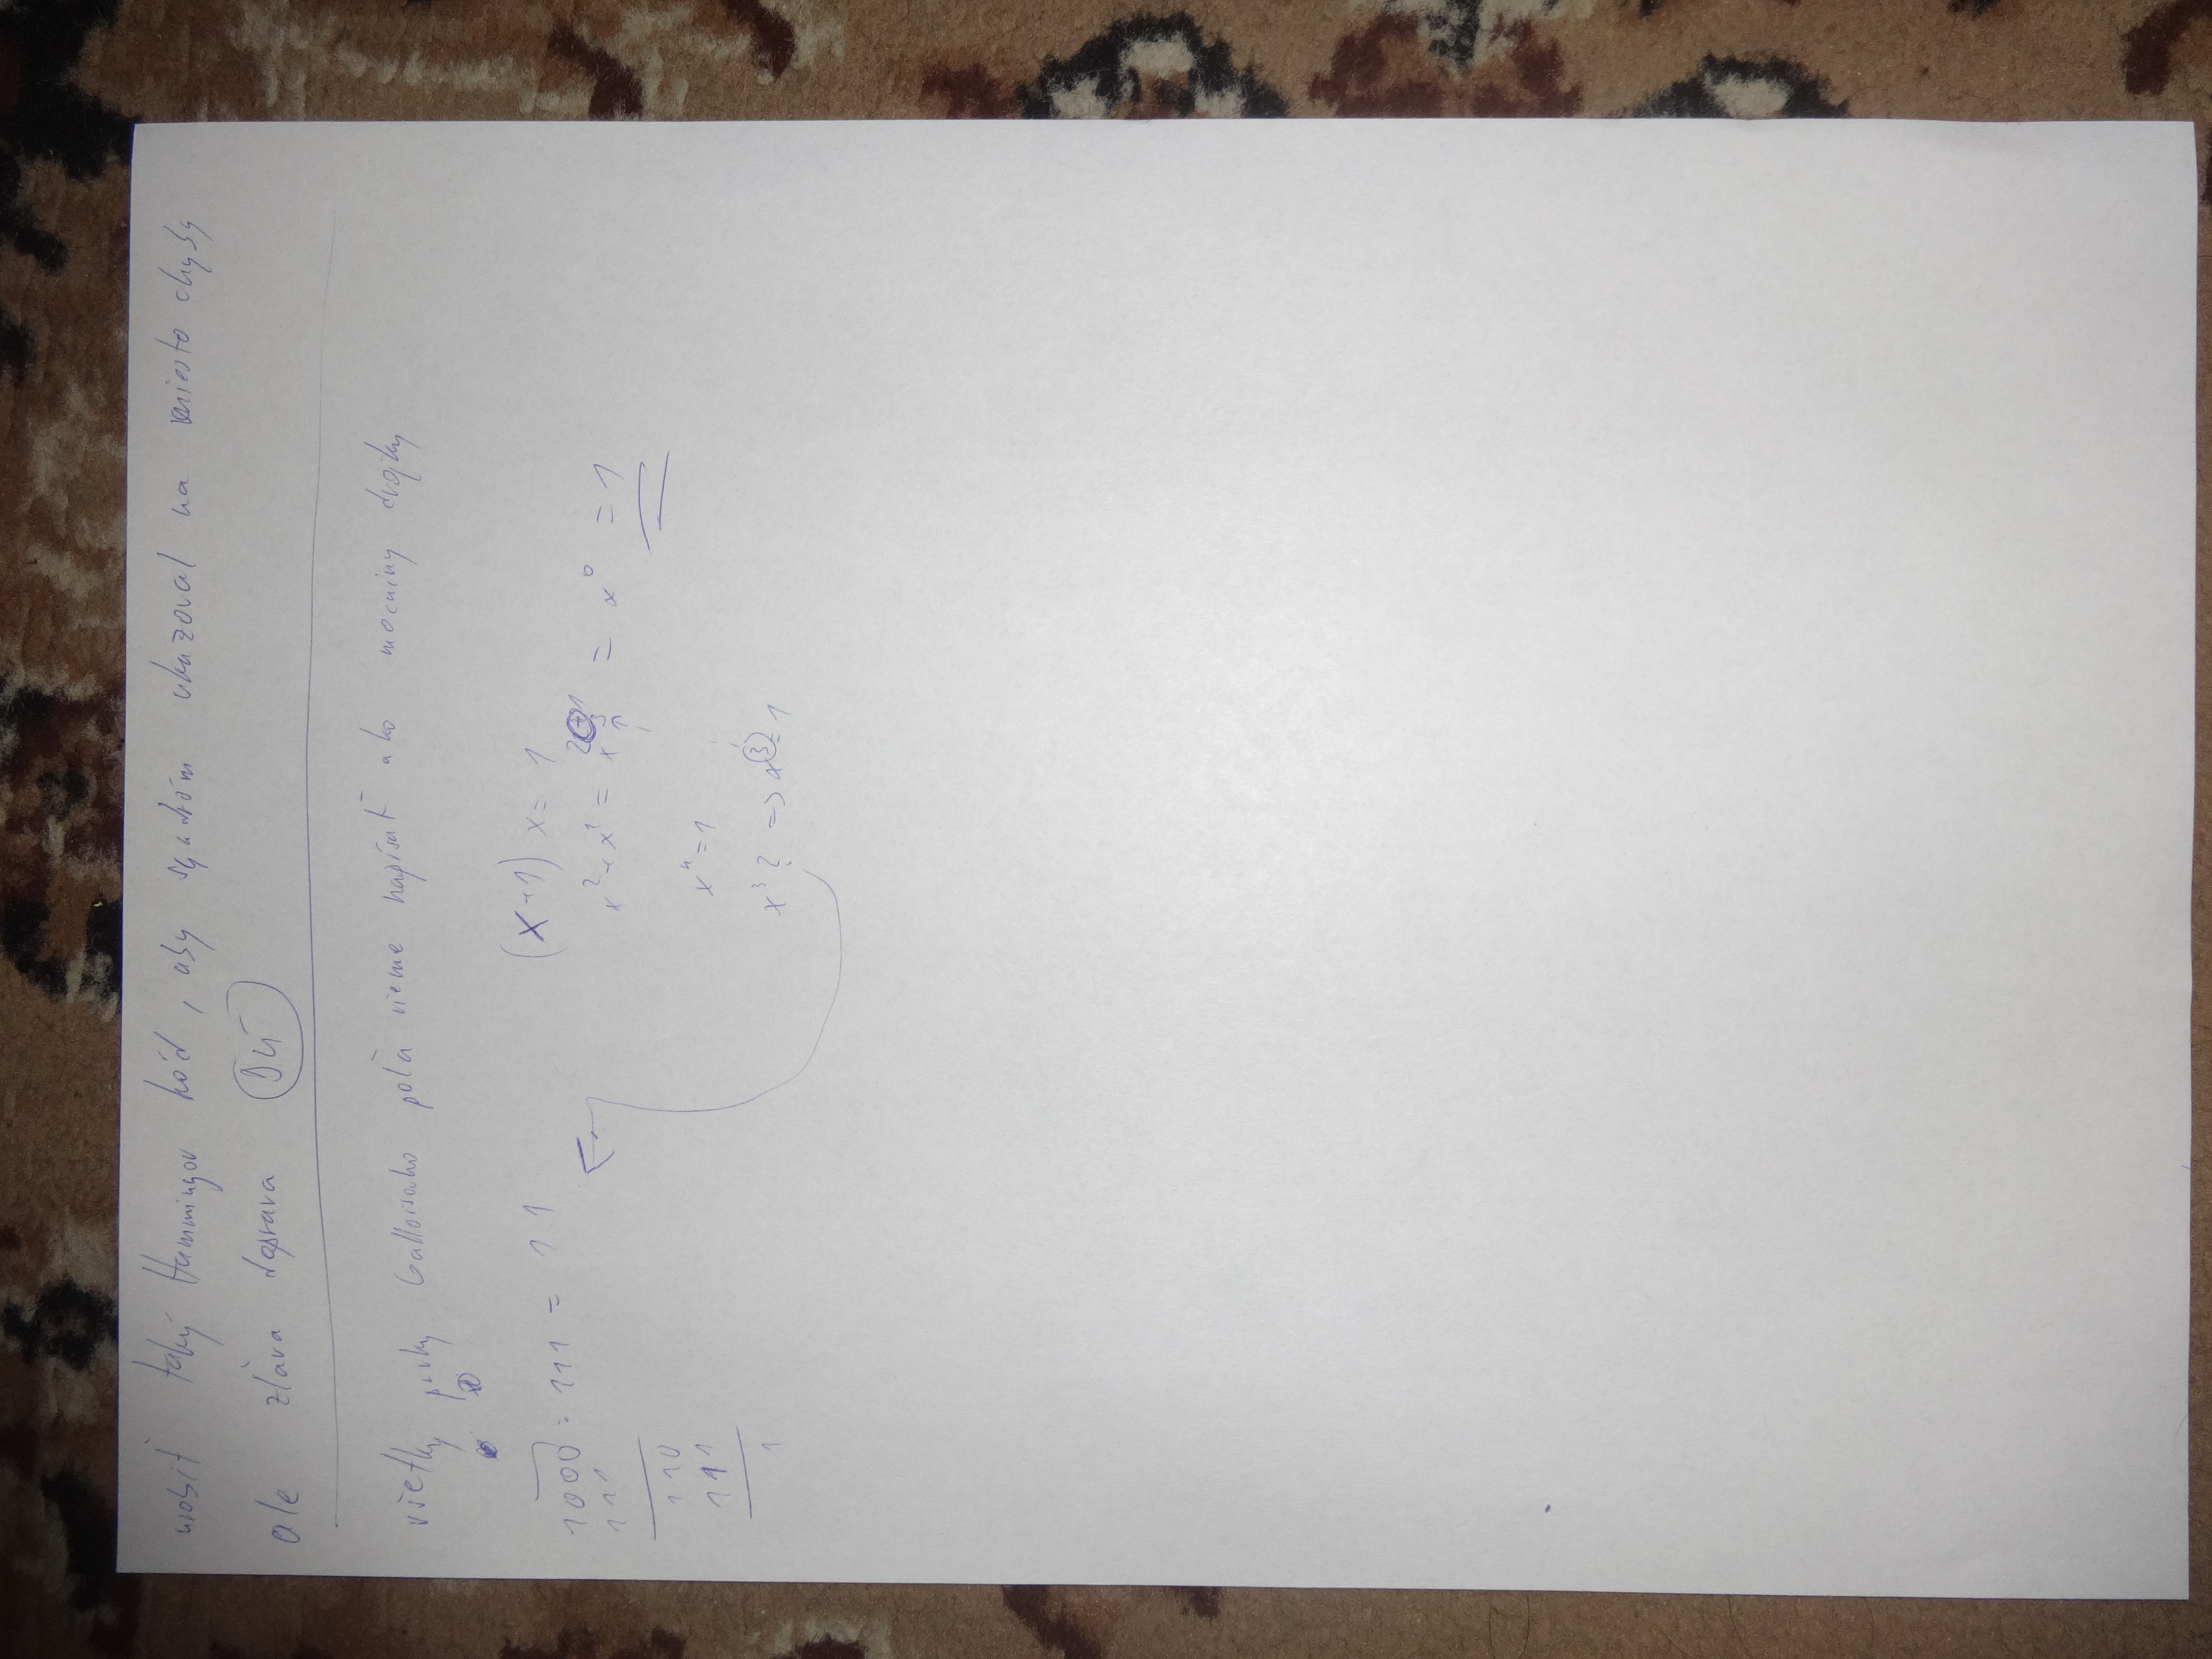 urobiť taký Hammingov kód, aby syndróm ukazoval na miesto chyby
ale zľava doprava DÚ
všetky prvky Galloisoho poľa vieme napísať ako mocniny dvojky
1000 : 111 = 11
111
110
111
1
(x+1) x = 1
x² + x¹ = x³ = x⁰ = 1
x⁴ = 1
x³ ? => x³ = 1